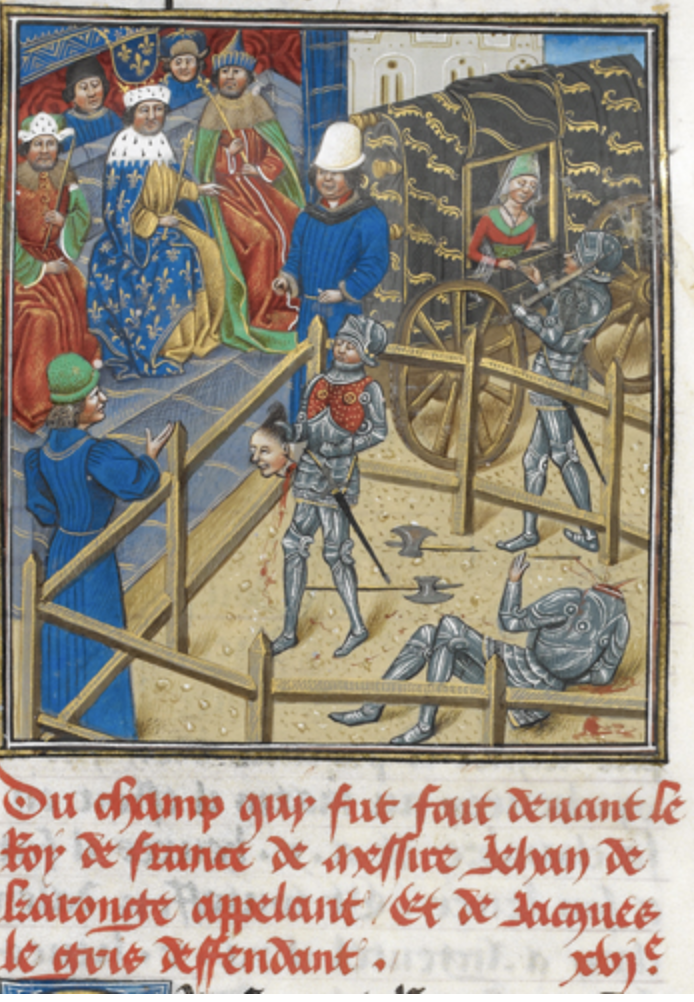 Du champ quy fut fait deuant le
Roy de france de messire Jehan de
karonge appelant / Et de Jacques
le gris deffendant . xvje